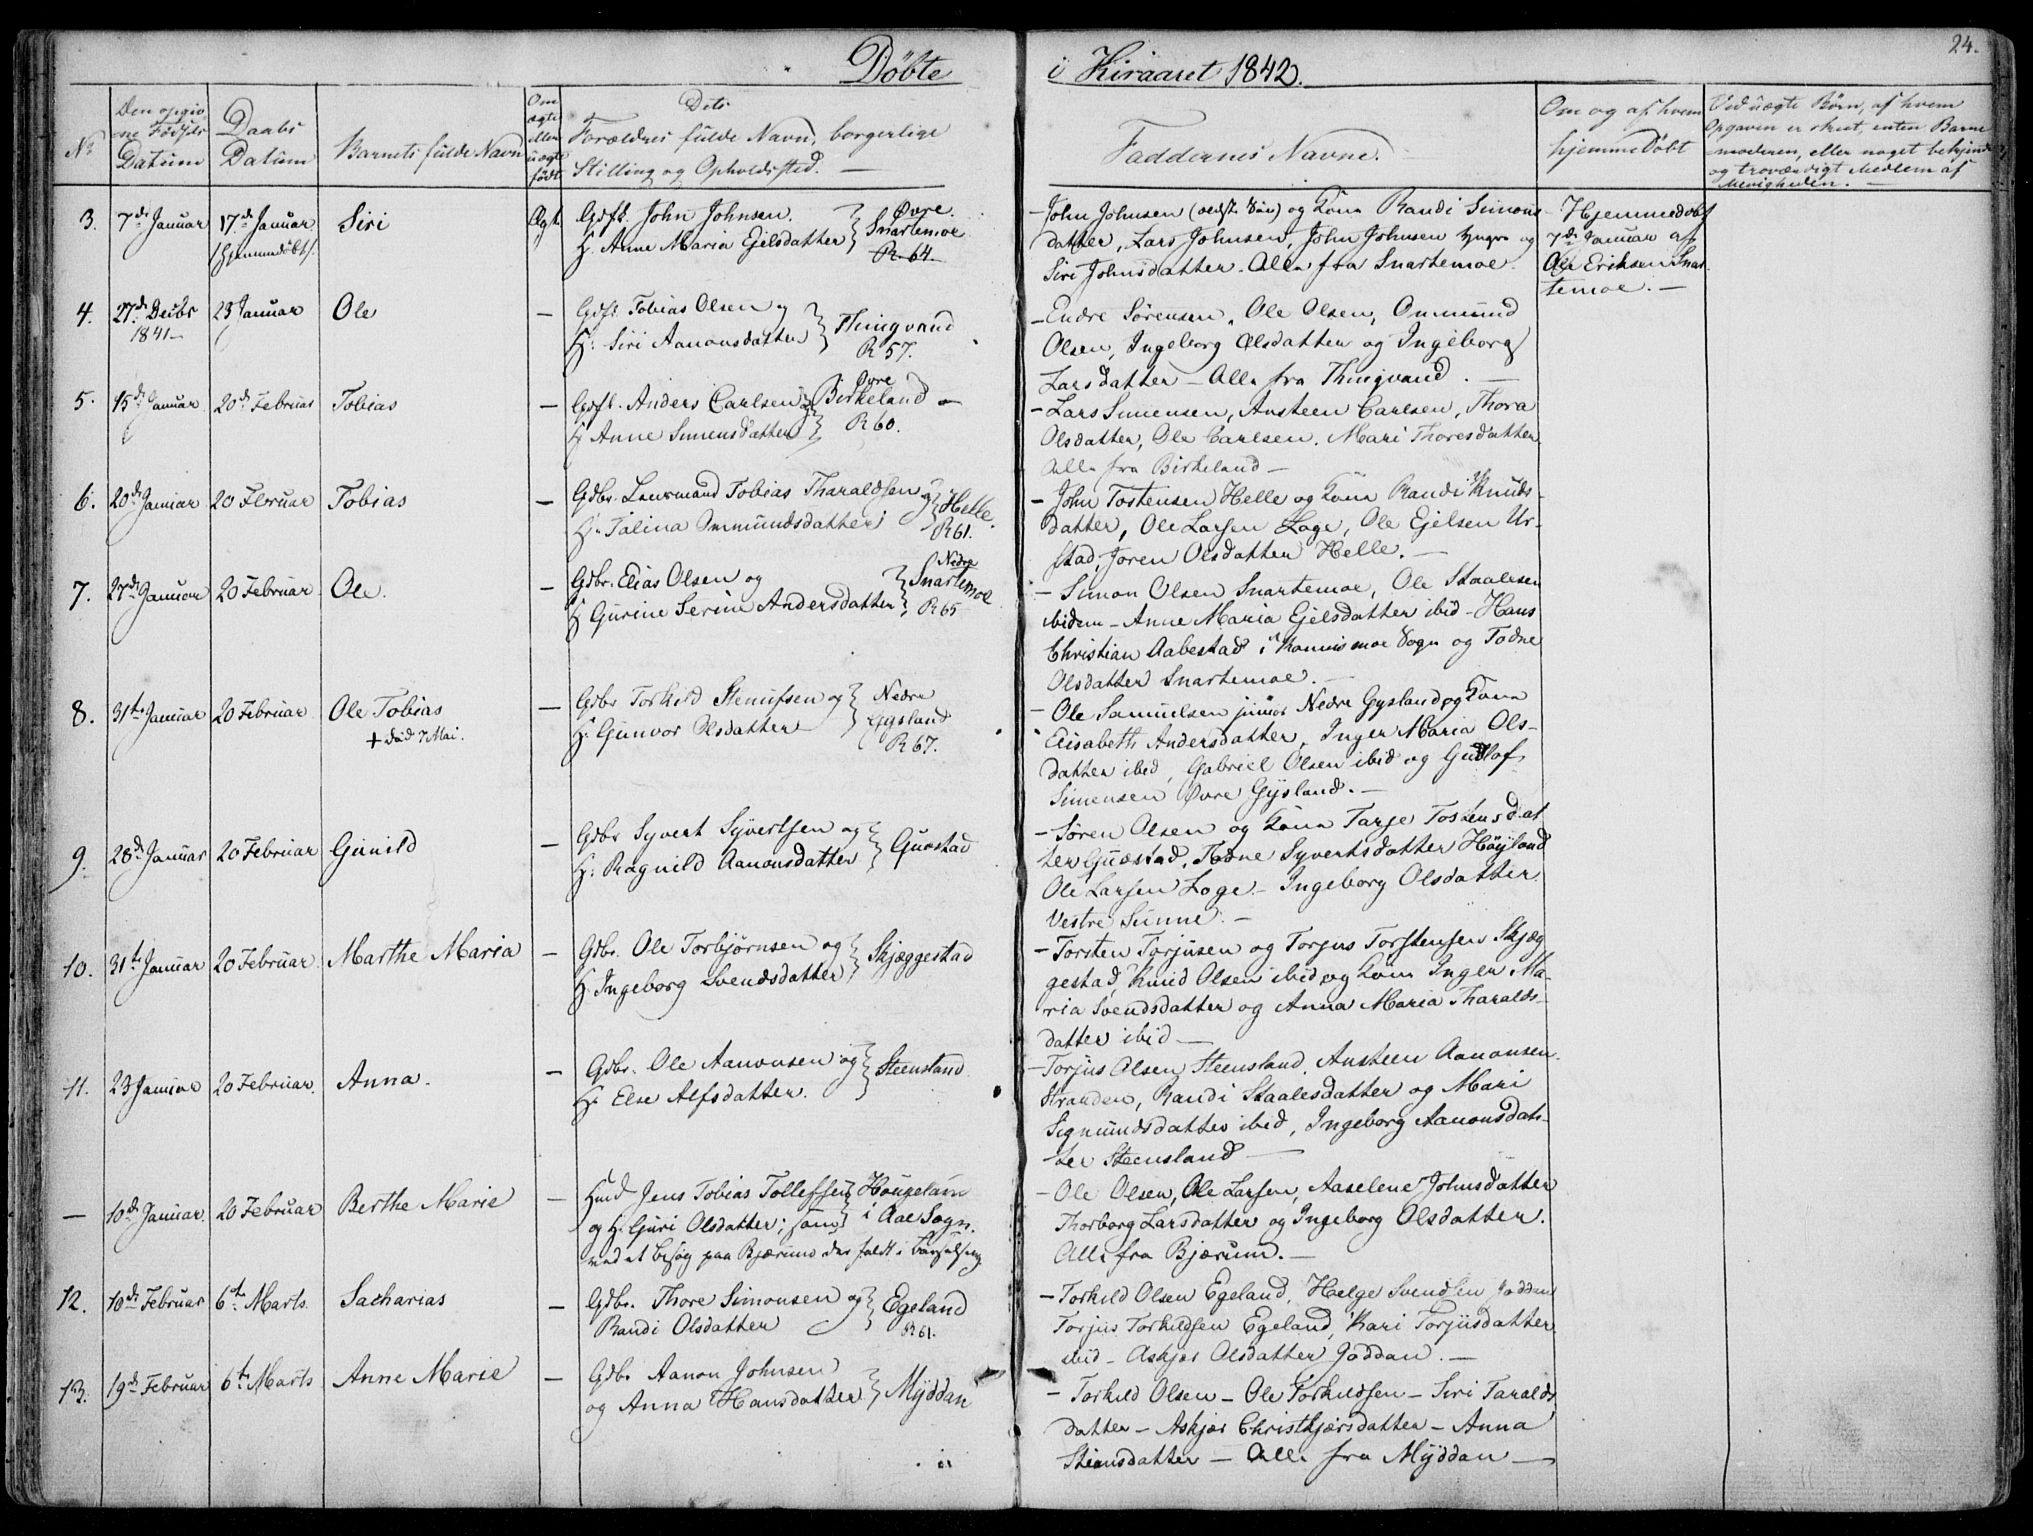 24.
Døbte i Kiraaret 1842.
No
Den opgiv
ne Fødsels
Datum
Daabs
Datum
Barnets fulde Navn
Om
ægte
eller
uægte
født
Dets
Forældres fulde Navn, borgerlige
Stilling og Opholdssted. —
Faddernes Navne.
Om og af hvem
hjemme Døbt
Ved uægte Børn, af hvem
Opgaven er skeet, enten Barne
moderen, eller noget bekjendt
og troværdigt Medlem af
Menigheden. —
3. 7de Januar 17de Januar Siri Ægt.
(hjemmedøbt).
Gdfl. John Johnsen.
H. Anne Maria Ejelsdatter
Øvre
Snartemoe
R 64
John Johnsen og Kona Randi Simons
datter, Lars Johnsen, John Johnsen yngre og
Siri Johnsdatter. Alle fra Snartemoe.
Hjemmedøbt
7de Januar af
Ole Eriksen Snar
temoe. —
4. 27de Decbr 23 Januar Ole —
1841 —
Gdfl. Tobias Olsen og
H. Siri Aanonsdatter
Thingvand
R 57.
Endre Sørensen, Ole Olsen, Ommund
Olsen, Ingeborg Olsdatter og Ingeborg
Larsdatter — Alle fra Thingvand. —
5. 15de Januar 20de Februar Tobias —
Gdfl. Anders Carlsen
H Anne Simensdatter
Øvre
Birkeland —
R 60.
— Lars Simensen, Ansteen Carlsen, Thora
Olsdatter, Ole Carlsen, Mari Thoresdatter
Alle fra Birkeland —
6. 20de Januar 20 Februar Tobias —
Gdbr. Lensmand Tobias Tharaldsen og
H. Talina Ommundsdatter
Helle.
R 61.
— John Tostensen Helle og Kona Randi Knuds
datter, Ole Larsen Loge, Ole Ejelsen Ur-
stad, Joren Olsdatter Helle. —
7. 27de Januar 20 Februar Ole. —
Gdbr. Elias Olsen og
H Gurine Serine Andersdatter
Nedre
Snartemoe
R 65
— Simon Olsen Snartemoe, Ole Staalesen
ibidem — Anne Maria Ejelsdatter ibid — Hans
Christian Aabestad i Konnismoe Sogn og Todne
Olsdatter Snartemoe. —
8. 31te Januar 20 Februar Ole Tobias —
+ død 7 Mai.
Gdbr Torkild Stenufsen og
H. Gunvor Olsdatter
Nedre
Gysland
R 67.
— Ole Samuelsen junior Nedre Gysland og Kona
Elisabeth Andersdatter, Inger Maria Ols-
datter ibid, Gabriel Olsen ibid og Gudlof
Simensen Øvre Gysland. —
9. 28de Januar 20 Februar Gunild —
Gdbr Syvert Syvertsen og
H. Ragnild Aanonsdatter
Quastad
— Søren Olsen og Kona Tarje Tostensdat
ter Quastad, Todne Syvertsdatter Høyland
Ole Larsen Loge — Ingeborg Olsdatter
Vestre Sunne. —
10. 31te Januar 20 Februar Marthe Maria —
Gdbr. Ole Torbjørnsen og
H. Ingeborg Svendsdatter
Skjæggestad
— Torsten Torjusen og Torjus Torstensen Skjæg
gestad, Knud Olsen ibid og Kona Inger Ma-
ria Svendsdatter og Anna Maria Tharalds-
datter ibid —
11. 23 Januar 20 Februar. Anna. —
Gdbr. Ole Aanonsen og
H. Else Alfsdatter.
Steensland
— Torjus Olsen Steensland, Ansteen Aanonsen
Stranden, Randi Staalesdatter og Mari
Sigmundsdatter ibid, Ingeborg Aanonsdat-
ter Steensland —
— 10de Januar. 20 Februar Berthe Marie —
Hmd Jens Tobias Tollefsen
og H. Guri Olsdatter; som
ved et besøg paa Bjærum der faldt i barselseng
Hougeland
i Aae Sogn.
— Ole Olsen, Ole Larsen, Aaselene Johnsdatter
Thorborg Larsdatter og Ingeborg Olsdatter.
Alle fra Bjærum. —
12. 10de Februar 6te Marts. Sacharias —
Gdbr. Thore Simonsen og
Randi Olsdatter
Egeland
R 61.
— Torkild Olsen Egeland, Helge Svendsen Joddan
Torjus Torkildsen Egeland, Kari Torjusdatter
ibid — Askjer Olsdatter Joddan. —
13. 19de Februar 6te Marts Anne Marie —
Gdbr Aanon Johnsen
og Anna Hansdatter
Myddan
— Torkild Olsen — Ole Torkildsen — Siri Taralds
datter — Askjer Christkjersdatter — Anna
Steensdatter — Alle fra Myddan —